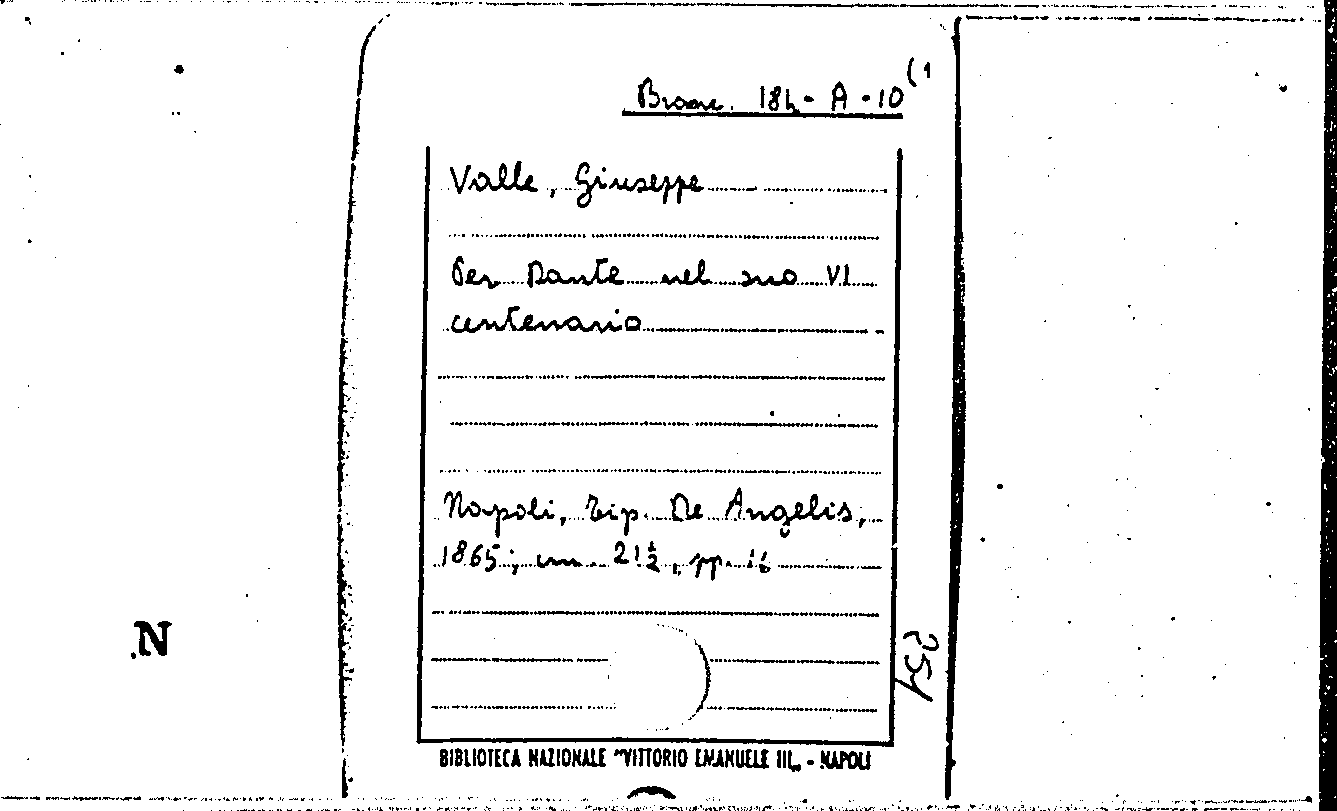 Branc. 184 - A - 10 (1
Valle, Giuseppe
Per Dante nel suo VI
centenario
Napoli, Tip. De Angelis,
1865; cm. 21½, pp. 16
251
N
BIBLIOTECA NAZIONALE "VITTORIO EMANUELE III„ - NAPOLI